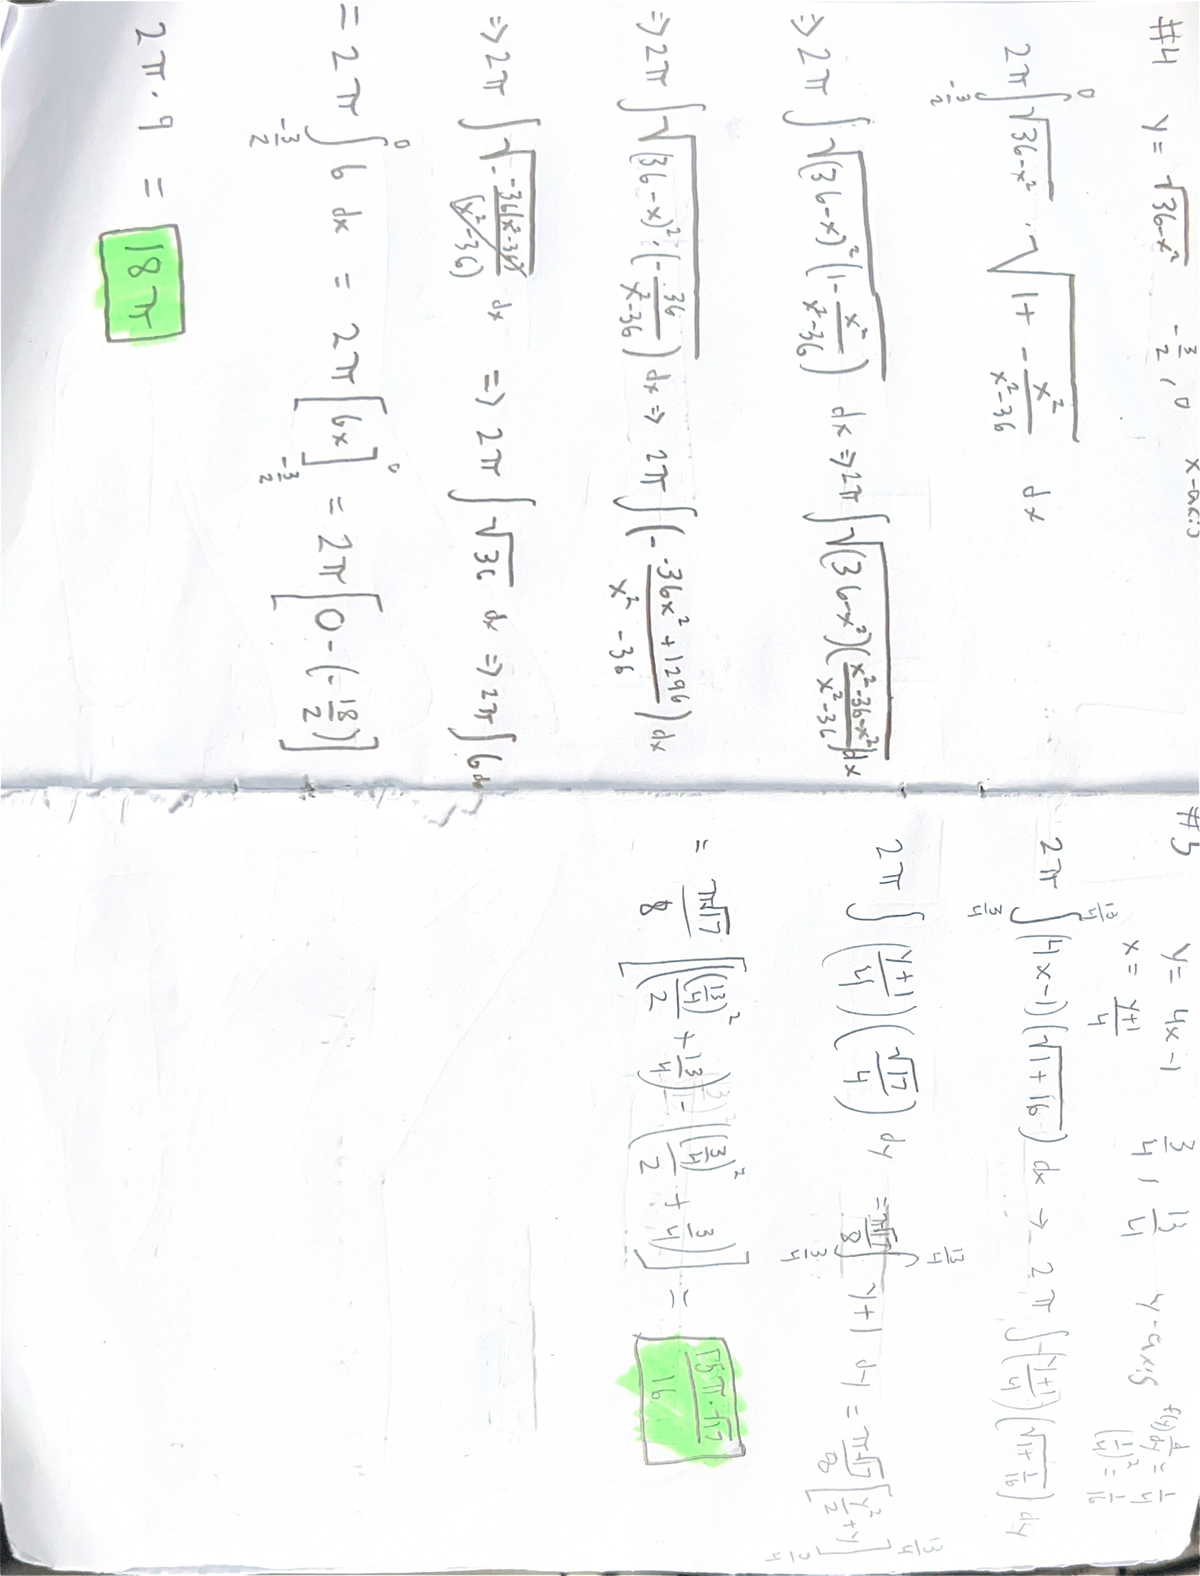 #4 y = √(36-x²) -3/2, 0 x-axis
2π ∫_{-3/2}^{0} √(36-x²) · √(1 + -x²/(x²-36)) dx
=> 2π ∫ √((36-x)² (1 - x²/(x²-36))) dx => 2π ∫ √((36-x²)(x²-36-x²/x²-36)) dx
=> 2π ∫ √((36-x)² · (-36/(x²-36))) dx => 2π ∫ (- -36x²+1296/(x²-36)) dx
=> 2π ∫ √(- -36(x²-36)/(x²-36)) dx => 2π ∫ √36 dx => 2π ∫ 6 dx
= 2π ∫_{-3/2}^{0} 6 dx = 2π [6x]_{-3/2}^{0} = 2π [0 - (-18/2)]
2π · 9 = 18π
#5 y = 4x-1 3/4, 13/4 y-axis f(y) d/dy = 1/4
x = (y+1)/4 (1/4)² = 1/16
2π ∫_{3/4}^{13/4} (4x-1)(√(1+16)) dx → 2π ∫ ((y+1)/4)(√(1+1/16)) dy
2π ∫ ((y+1)/4)(√17/4) dy = π√17/8 ∫_{3/4}^{13/4} y+1 dy = π√17/8 [y²/2 + y]_{3/4}^{13/4}
= π√17/8 [((13/4)²/2 + 13/4) - ((3/4)²/2 + 3/4)] = 15π·√17/16